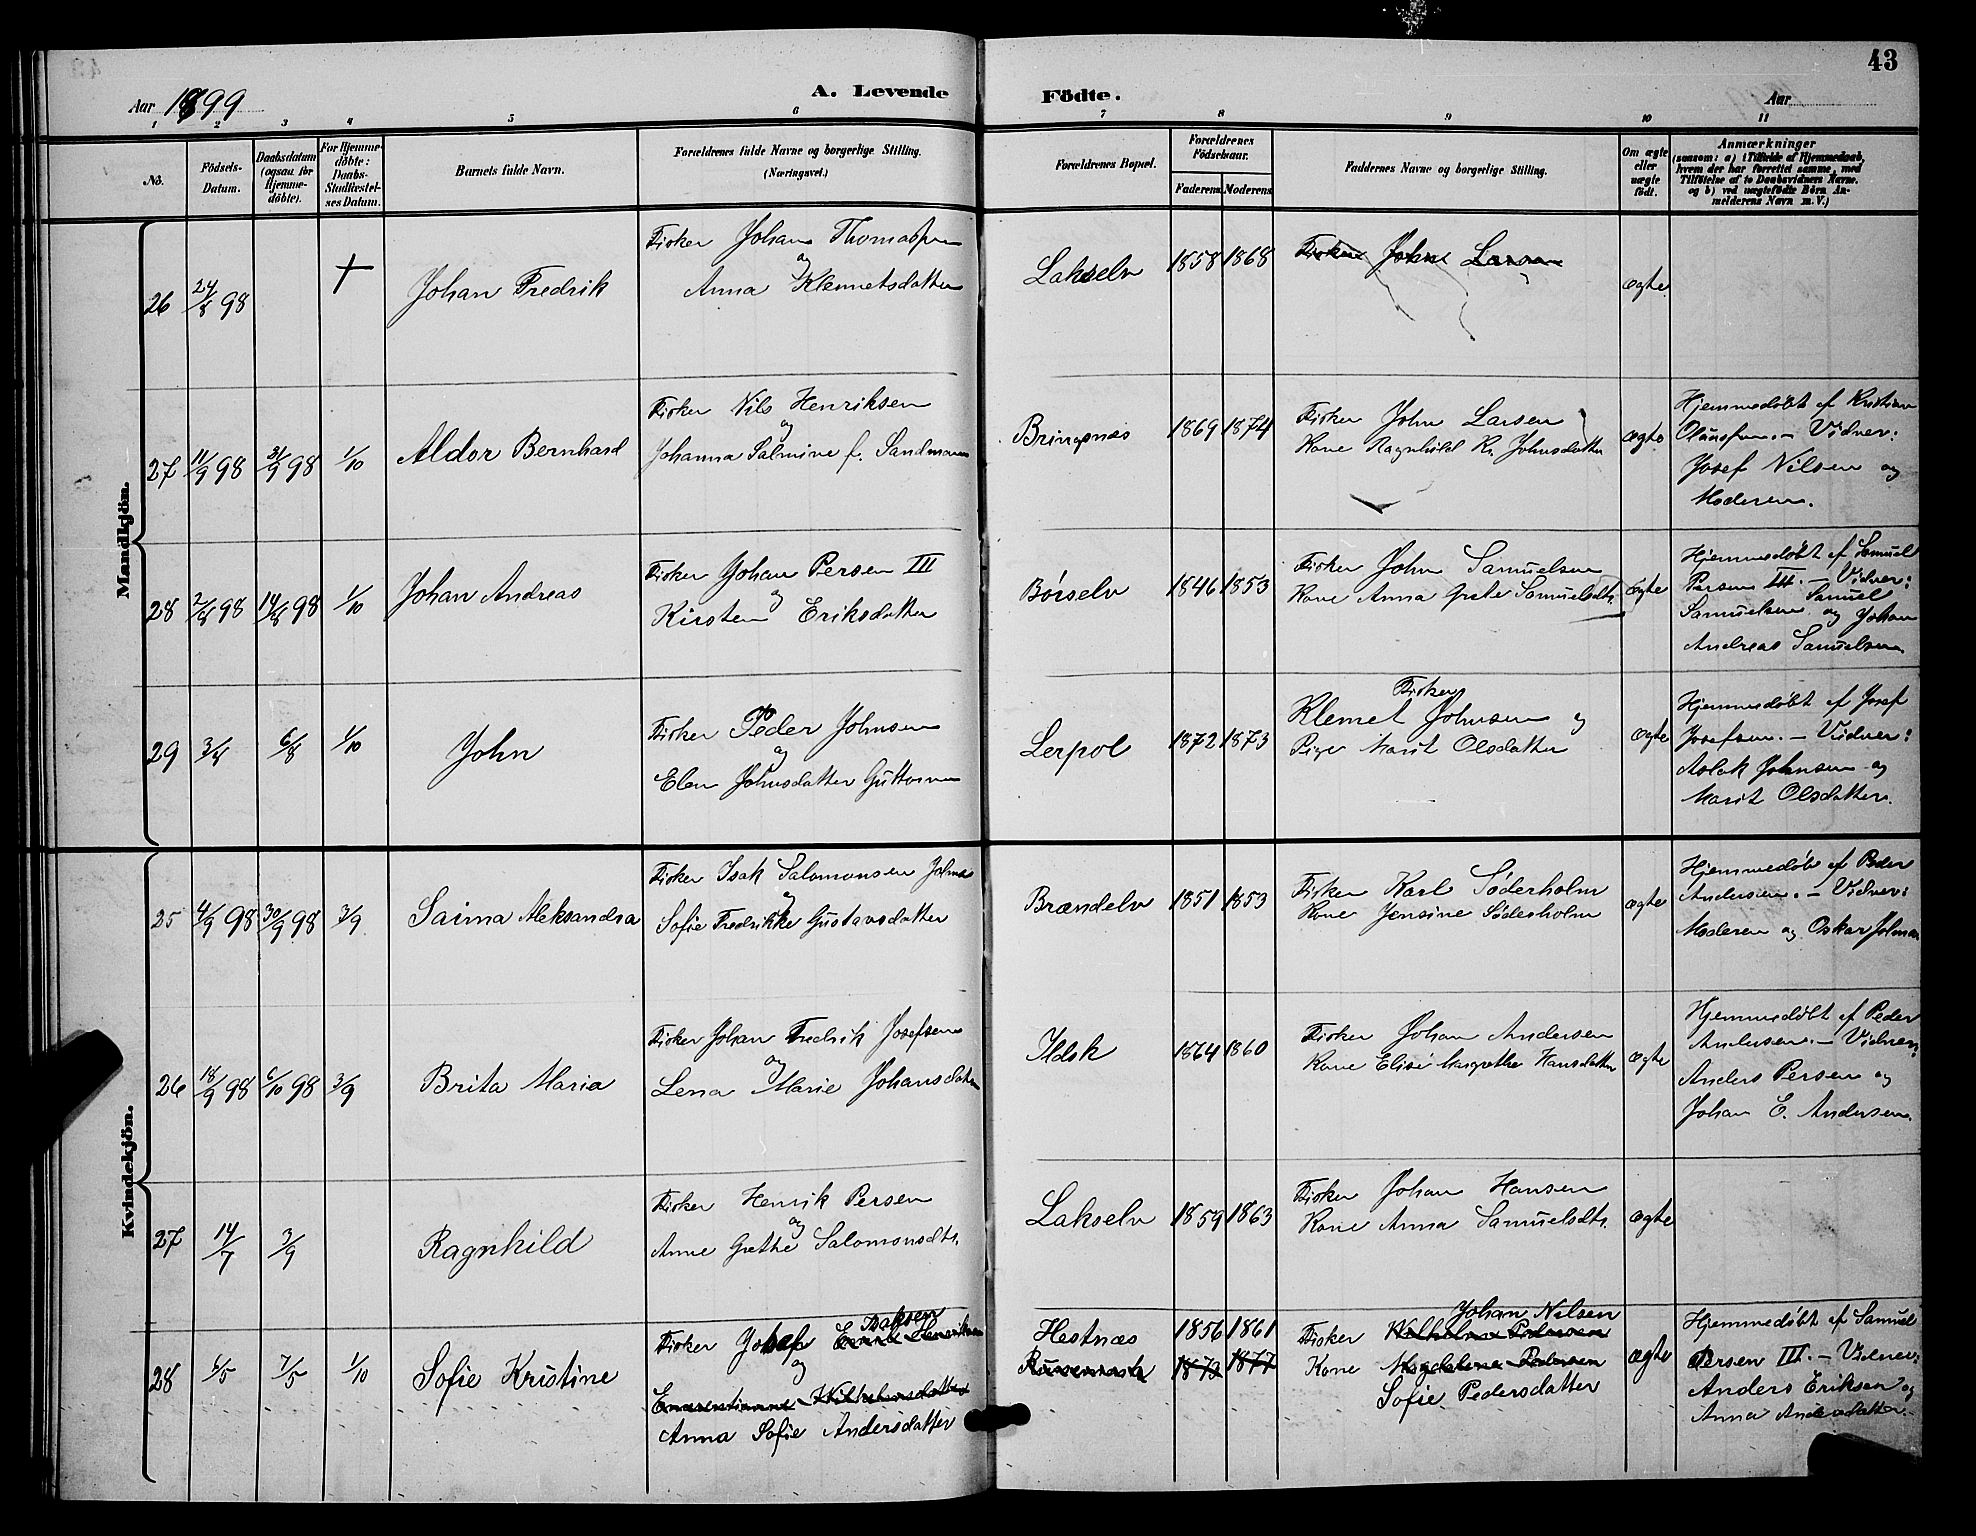 43
Aar 1899
A. Levende
Födte.
Aar
1 2 3 4 5 6 7 8 9 10 11
No.
Födsels-
Datum.
Daabsdatum
(ogsaa for
Hjemme-
döbte).
For Hjemme-
döbte:
Daabs-
Stadfæstel-
ses Datum.
Barnets fulde Navn.
Forældrenes fulde Navne og borgerlige Stilling.
(Næringsvei.)
Forældrenes Bopæl.
Forældrenes
Födselsaar.
Faderens. Moderens.
Faddernes Navne og borgerlige Stilling.
Om ægte
eller
uægte
födt.
Anmærkninger
(saasom: a) i Tilfælde af Hjemmedaab,
hvem der har forrettet samme, med
Tilföielse af to Daabsvidners Navne,
og b) ved uægtefödte Börn An-
melderens Navn m. V.)
Mandkjön.
26 24/8 98 + Johan Fredrik
Fisker Johan Thomassen
og
Anna Klemetsdatter
Lakselv 1858 1868
Fisker John Larsen
ægte
27 11/9 98 98 1/10 Aldor Bernhard
Fisker Nils Henriksen
og
Johanna Salmine f. Sandmann
Bringnæs 1869 1874
Fisker John Larsen
Kone Ragnhild K. Johnsdatter
ægte
Hjemmedøbt af Kristian
Olaussen. – Vidner:
Josef Nilsen og
Moderen.
28 98 14/8 98 1/10 Johan Andreas
Fisker Johan Persen III
og
Kirsten Eriksdatter
Børselv 1846 1853
Fisker John Samuelsen
Kone Anna Grete Samuelsdtr.
ægte
Hjemmedøbt af Samuel
Persen III. – Vidner:
Samuel
Samuelsen og Johan
Andreas Samuelsen
29 6/8 1/10 John
Fisker Peder Johnsen
og
Elen Johnsdatter Guttorm
Lerpol 1872 1873
Fisker
Klemet Johnsen og
Pige Marit Olsdatter
ægte
Hjemmedøbt af Josef
Josefsen. – Vidner:
Aslak Johnsen og
Marit Olsdatter.
Kvindekjön.
25 4/9 98 30/9 98 3/9 Saima Aleksandra
Fisker Isak Salomonsen Jolma
og
Sofie Fredrikke Gustavsdatter
Brændelv 1851 1853
Fisker Karl Søderholm
Kone Jensine Søderholm
ægte
Hjemmedøbt af Peder
Andersen. – Vidner:
Moderen og Oskar Jolma
26 18/9 98 6/10 98 3/9 Brita Maria
Fisker Johan Fredrik Josefsen
og
Lena Marie Johansdatter
Ildsk 1864 1860
Fisker Johan Andersen
Kone Elise Margrethe Hansdatter
ægte
Hjemmedøbt af Peder
Andersen. – Vidner:
Anders Persen og
Johan E. Andersen.
27 14/7 3/9 Ragnhild
Fisker Henrik Persen
og
Anne Grethe Salomonsdtr.
Lakselv 1859 1863
Fisker Johan Hansen
Kone Anna Samuelsdtr.
ægte
28 6/5 7/5 1/10 Sofie Kristine
Fisker Josef
og
Anna Sofie Andersdatter
Hestnæs 1856 1861
1873 1877
Johan Nilsen
Fisker
Kone Magdalena Pedersen
Sofie Pedersdatter
ægte
Hjemmedøbt af Samuel
Persen III. – Vidner:
Anders Eriksen og
Anna Andersdatter.